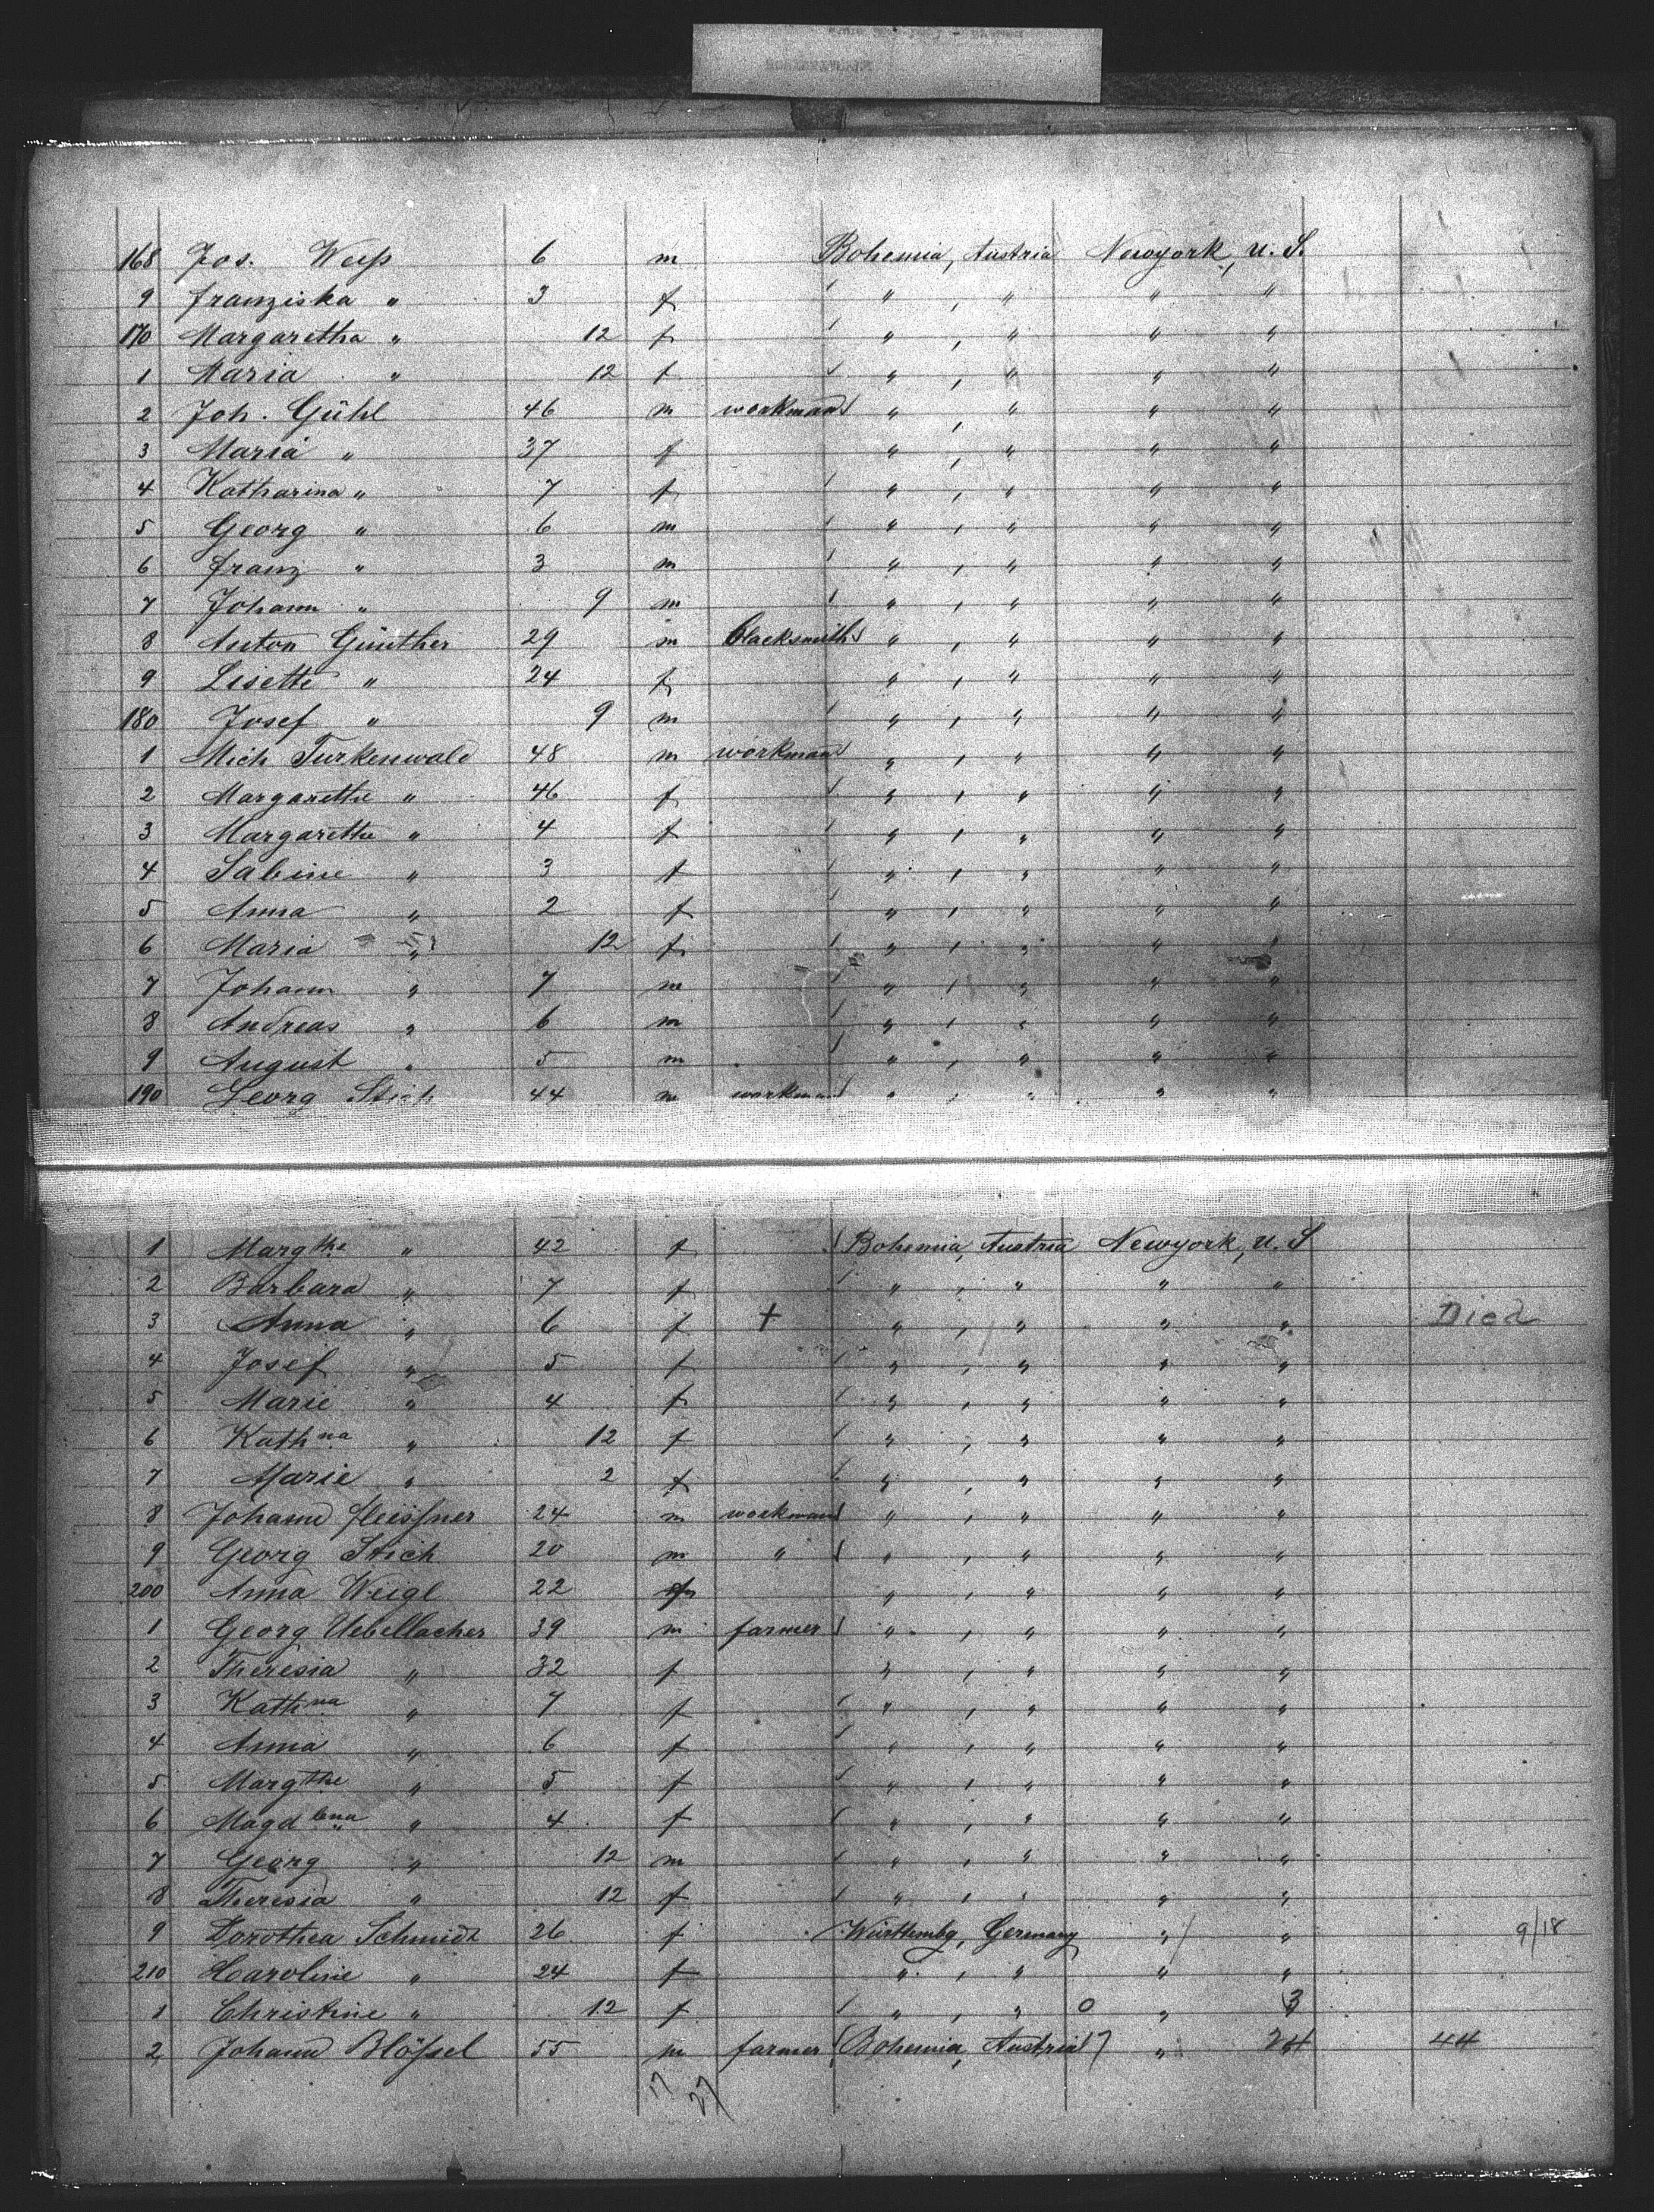 168 Jos. Weiß 6 m Bohemia, Austria Newyork, U. S.
9 Franziska " 3 f " , " " "
170 Margaretha " 12 f " , " " "
1 Maria " 12 f " , " " "
2 Joh. Gühl 46 m workman " , " " "
3 Maria " 37 f " , " " "
4 Katharina " 7 f " , " " "
5 Georg " 6 m " , " " "
6 Franz " 3 m " , " " "
7 Johann " 9 m " , " " "
8 Anton Günther 29 m blacksmith " , " " "
9 Lisette " 24 f " , " " "
180 Josef " 9 m " , " " "
1 Mich Turkenwald 48 m workman " , " " "
2 Margarethe " 46 f " , " " "
3 Margarethe " 4 f " , " " "
4 Sabine " 3 f " , " " "
5 Anna " 2 f " , " " "
6 Maria " 12 f " , " " "
7 Johann " 7 m " , " " "
8 Andreas " 6 m " , " " "
9 August " 5 m " , " " "
190 Georg Stich 44 m workman " , " " "
1 Margthe " 42 f Bohemia, Austria Newyork, U. S
2 Barbara " 7 f " , " " "
3 Anna " 6 f + " , " " " Died
4 Josef " 5 f " , " " "
5 Marie " 4 f " , " " "
6 Kathna " 12 f " , " " "
7 Marie " 2 f " , " " "
8 Johann Fleissner 24 m workman " , " " "
9 Georg Stich 20 m " " , " " "
200 Anna Weigl 22 f " , " " "
1 Georg Uebellacher 39 m farmer " , " " "
2 Theresia " 32 f " , " " "
3 Kathna " 7 f " , " " "
4 Anna " 6 f " , " " "
5 Margthe " 5 f " , " " "
6 Magdlena " 4 f " , " " "
7 Georg " 12 m " , " " "
8 Theresia " 12 f " , " " "
9 Dorothea Schmidt 26 f Württembg, Germany " " 9/18
210 Caroline " 24 f " , " " "
1 Christine " 12 f " , " 0 " 3
2 Johann Blößel 55 m farmer Bohemia, Austria 7 " 24 44
17 27